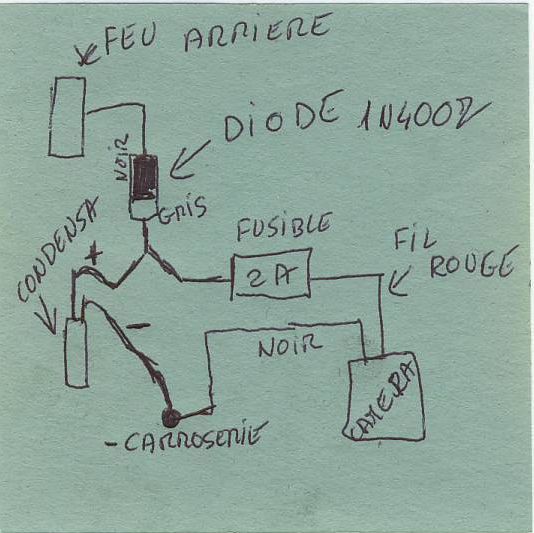 FEU ARRIERE
DIODE 1N4007
NOIR
GRIS
CONDENSA
+
FUSIBLE
2A
FIL
ROUGE
-
NOIR
CAMERA
-CARROSERIE